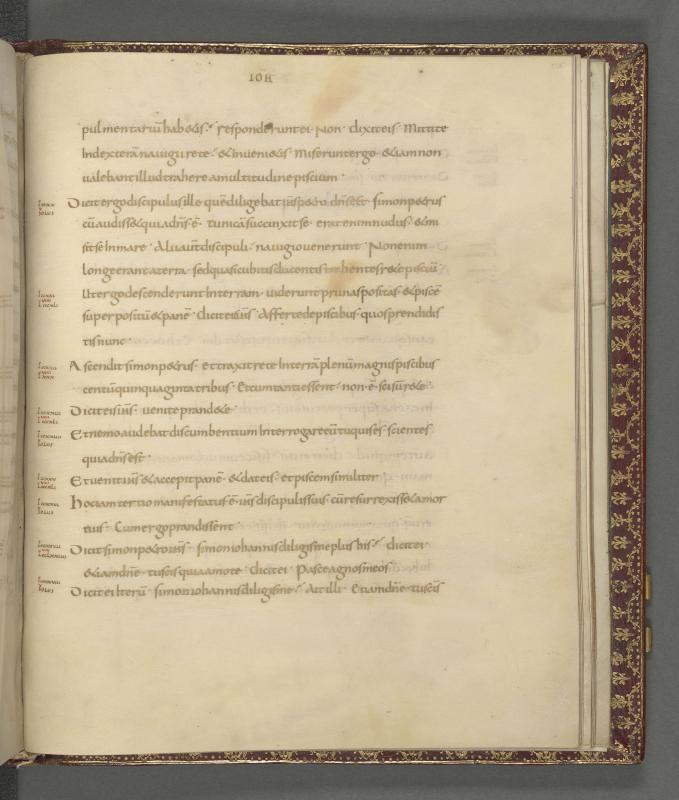 IOH
pulmentariū habetis· responderunt ei Non· dixit eis· Mittite
In dexterā nauigii rete· et Inuenietis· Miserunt ergo· et iam non
ualebant illud trahere a multitudine piscium·
Dicit ergo discipulus ille quē diligebat iħs petro dn̄s est simon petrus
cū audisset quia dn̄s ē· tunicā succinxit se· erat enim nudus· et mi
sit se In mare· Alii autē discipuli· nauigio uenerunt· Non enim
longe erant a terra· sed quasi cubitis ducentis trahentes rete pisciū
Ut ergo descenderunt In terram· uiderunt prunas positas· et piscē
super positū et panē· dicit eis iħs· Afferte de piscibus· quos prendidis
tis nunc·
Ascendit simon petrus· et traxit rete In terrā plenū magnis piscibus
centū quinquaginta tribus· Et cum tanti essent· non ē scisū rete·
Dicit eis iħs· uenite prandete·
Et nemo audebat discumbentium Interrogare eū tu quis es· scientes
quia dn̄s est·
Et uenit iħs et accepit panē· et dat eis· et piscem similiter·
Hoc iam tertio manifestatus ē iħs discipulis suis· cū resurrexisset a mor
tuis· Cum ergo prandissent·
Dicit simon petro iħs· simon iohannis diligis me plus his· dicit ei·
etiam dn̄e· tu scis quia amo te· dicit ei· Pasce agnos meos·
Dicit ei Iterū· simon iohannis diligis me· Ait illi· Etiam dn̄e· tu scis